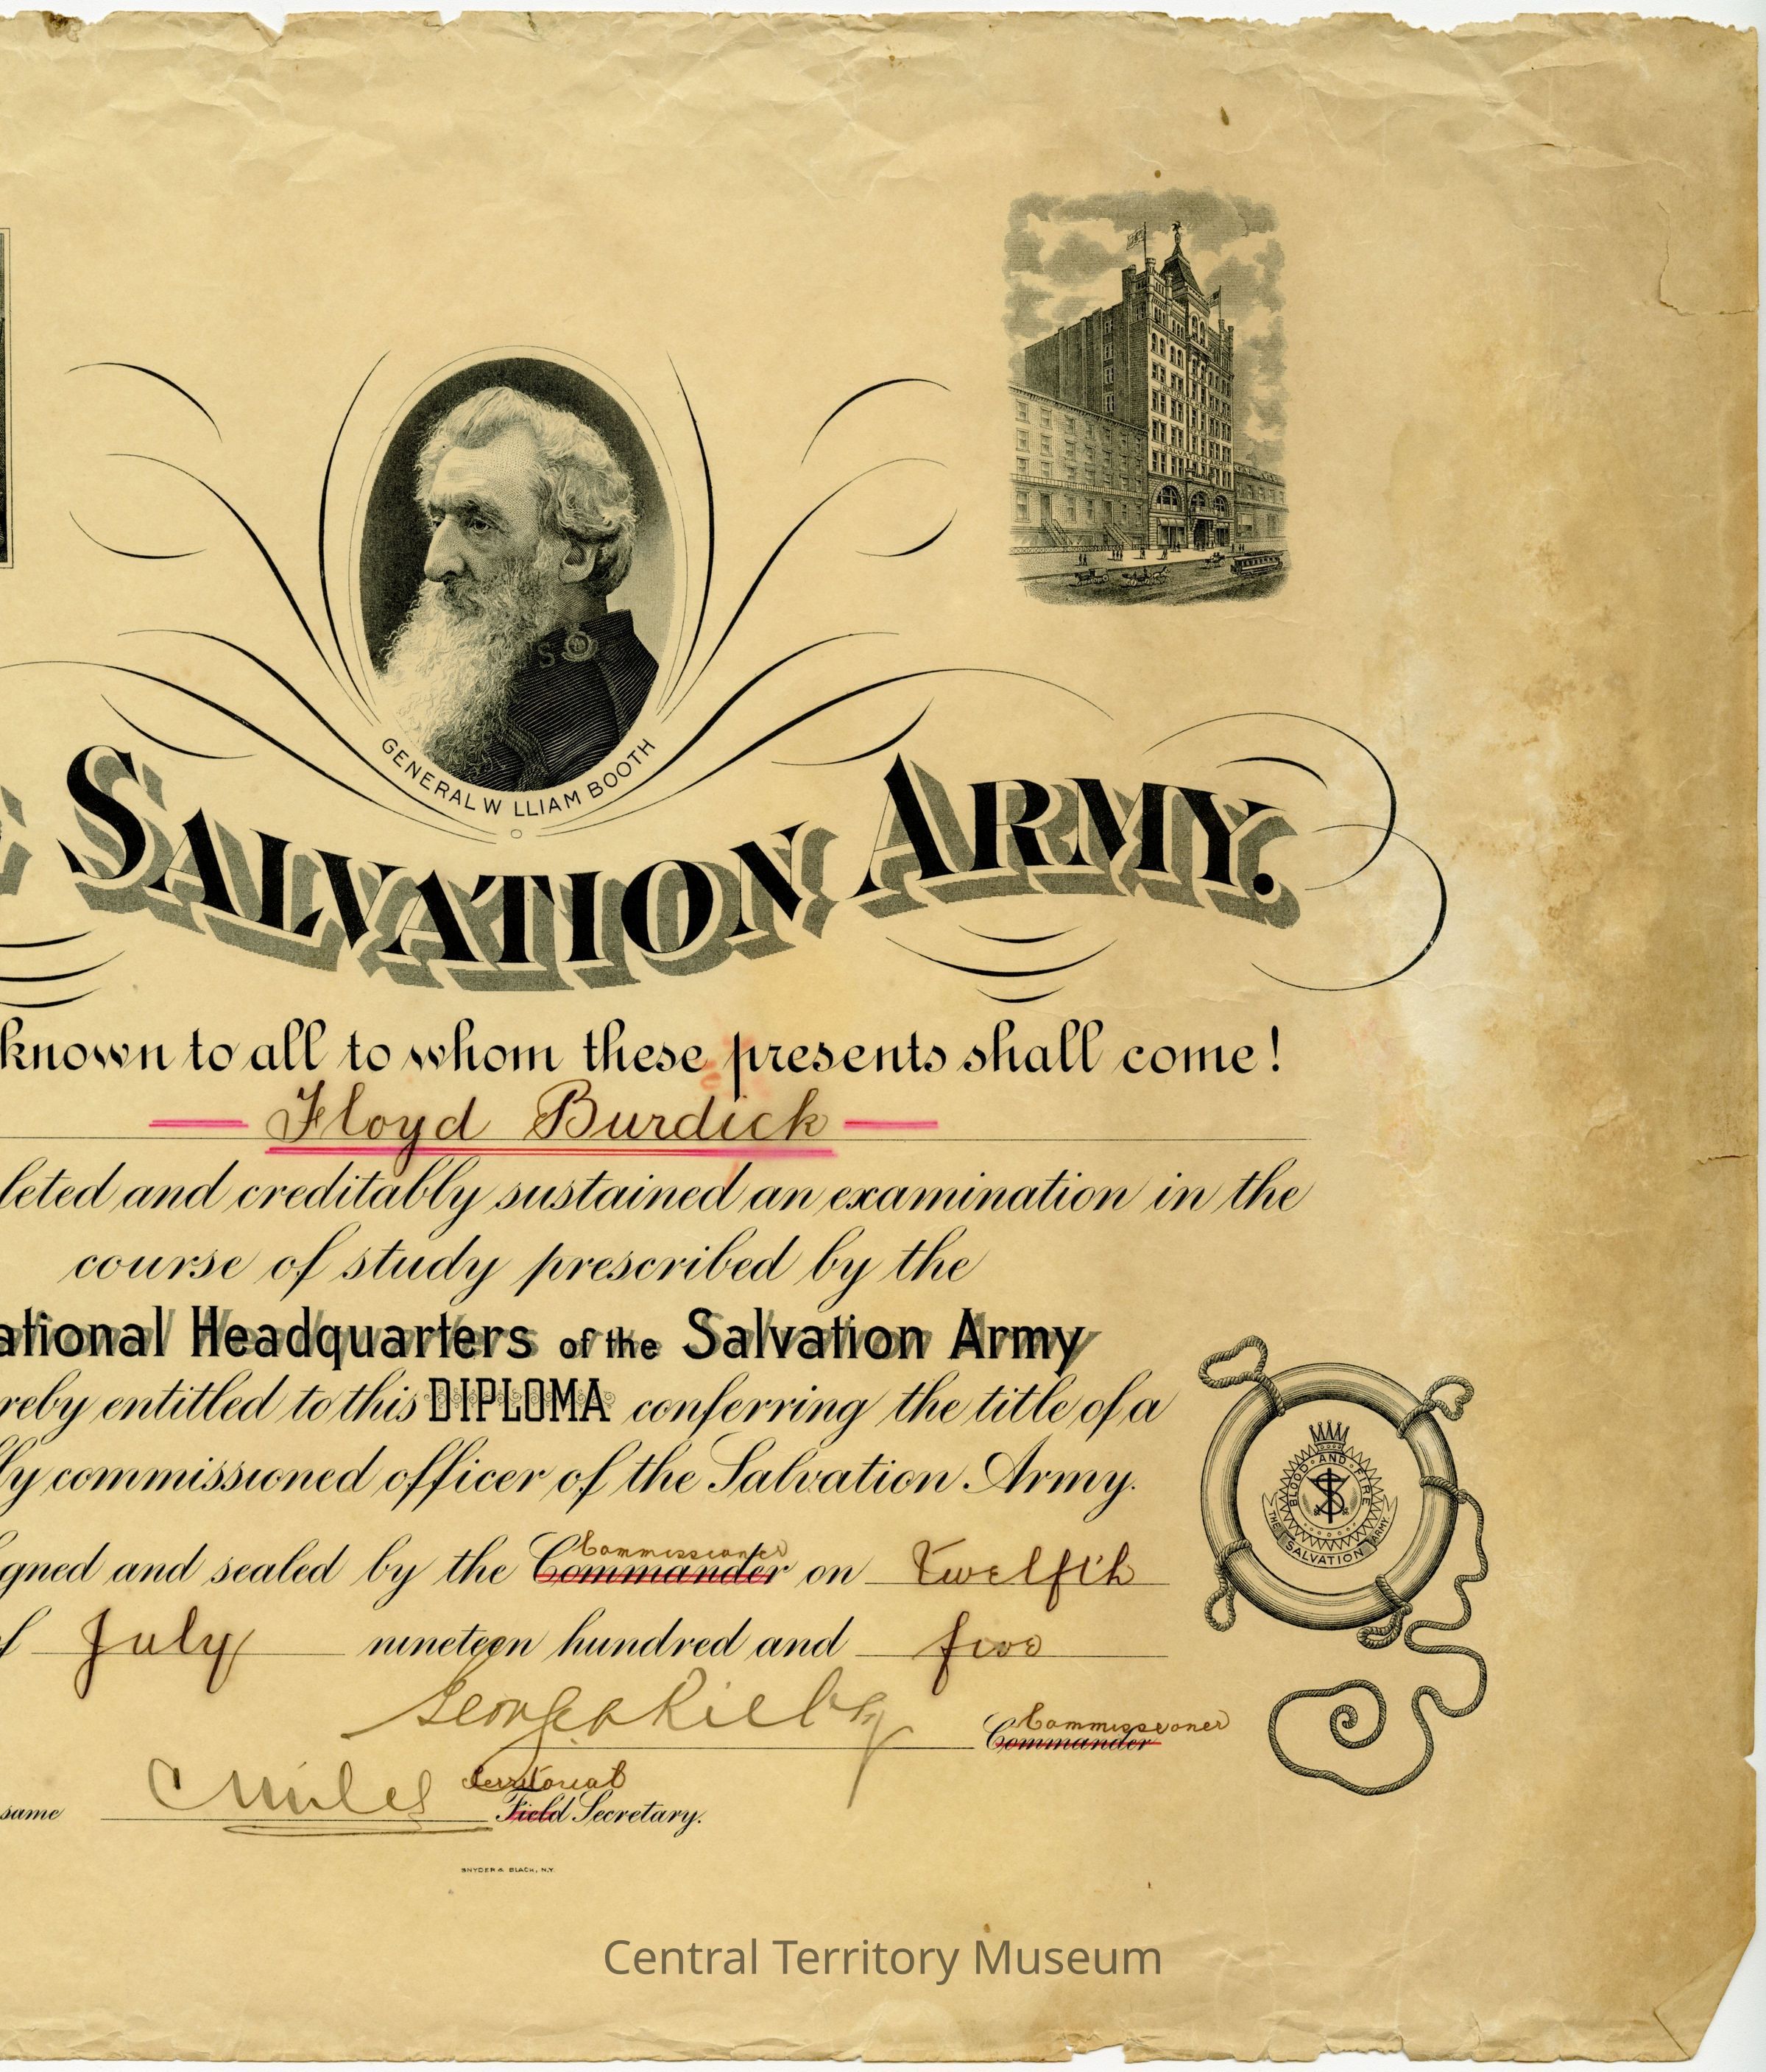 GENERAL W LLIAM BOOTH
SALVATION ARMY.
known to all to whom these presents shall come!
Floyd Burdick
leted and creditably sustained an examination in the
course of study prescribed by the
ational Headquarters of the Salvation Army
reby entitled to this DIPLOMA conferring the title of a
ly commissioned officer of the Salvation Army.
Commissioner
gned and sealed by the Commander on Twelfth
f July nineteen hundred and five
Commissioner
Commander
Territorial
same C Miles Field Secretary.
BLOOD AND FIRE
THE SALVATION ARMY.
SNYDER & BLACK, N.Y.
Central Territory Museum